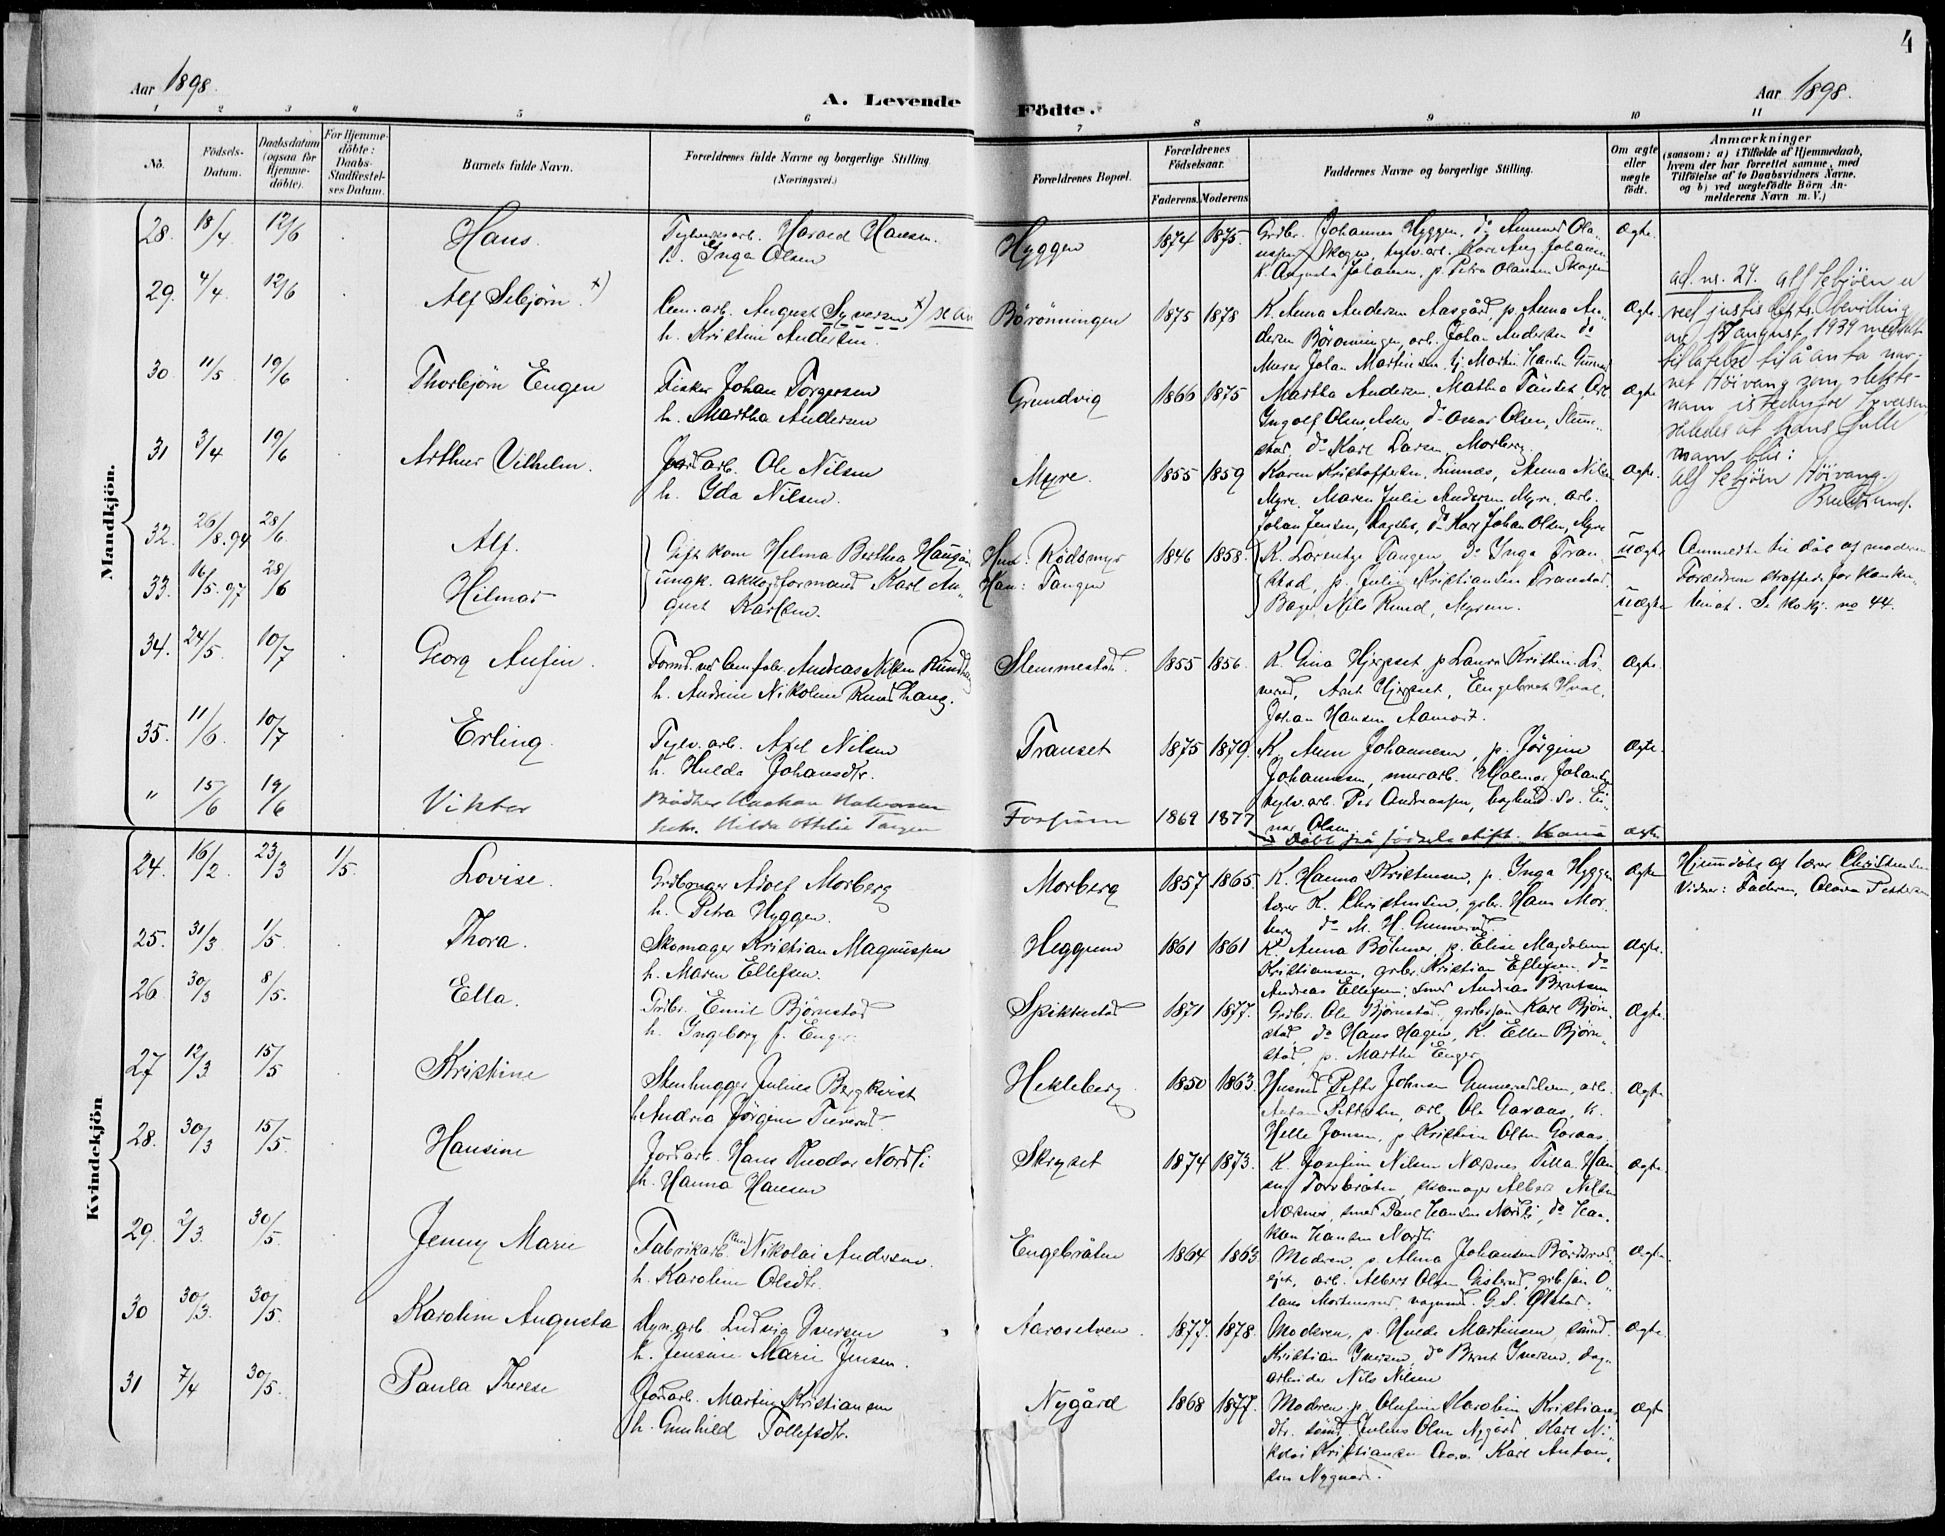 4
Aar 1898.
A. Levende Födte.
Aar 1898.
1 2 3 4 5 6 7 8 9 10 11
No.
Födsels-Datum.
Daabsdatum (ogsaa for Hjemme-döbte).
For Hjemme-döbte: Daabs-Stadfæstel-ses Datum.
Barnets fulde Navn.
Forældrenes fulde Navne og borgerlige Stilling
(Næringsvei.)
Forældrenes Bopæl.
Forældrenes Födselsaar.
Faderens. Moderens.
Faddernes Navne og borgerlige Stilling.
Om ægte eller uægte født.
Anmærkninger
(saasom: a) i Tilfælde af Hjemmedaab,
hvem der har forrettet samme, med
Tilföielse af to Daabsvidners Navne.
og b) ved uægtefödte Börn An-
melderens Navn m. V.)
Mandkjön.
28. 18/4 12/6 Hans. Harald Hansen.
h. Inga Olsen
Hyggen 1874 1875. Grdbr. Johannes Hyggen, do
Skogen, Karl Aug. Johansen
K. Augusta Johansen, p. Petra Olausen Skogen
Ægte.
29. 4/4. 12/6 Alf Sebjørn x) Cem. arb. August Syversen x)
h. Kristine Andersen.
Börönningen 1875 1878 K. Anna Andersen Aasgård, p. Anna An-
dersen Böronningen, arb. Johan Andersen do
Murer Johan Martinsen,
Ægte
ad. nr. 29. Alf Sebjörn er
ved justis depts. bevilling
av 17 august 1939 meddelt
tillatelse til å anta nav-
net Höivang som slekts-
navn istedenfor Syversen,
således at hans fulle
navn blir:
Alf Sebjörn Höivang.
30. 11/5 19/6 Thorbjørn Engen Fisker Johan Torgersen
h. Martha Andersen
Grundvig 1866 1875 Martha Andersen, Mathea
Ingolf Olsen, do Omar Olsen,
do Karl Larsen Morberg
Ægte
31 3/4 19/6 Arthur Vilhelm. Jordarb. Ole Nilsen
h. Ida Nilsen.
Myre. 1855 1859 Karen Kristoffersen, Linnæs, Nilsen
Myre. Maren Julie Andersen, Myre. arb.
Johan Jensen, do Karl Johan Olsen, Myre
Ægte.
32. 26/8. 94 28/6 Alf.
33. 16/5. 97 28/6 Hilmar
Gift kone Helma Berthea
ungk. akkordformand Karl Au-
gust Karlsen.
Hun: Rødsmyr
Han: Tangen
1846 1858. K. Lorentze Tangen, do Inga Tran-
stad, p. Julie Kristiansen Transtad.
Bager Nils Ruud, Myren.
uægte
uægte
Anmeldte til dåb af moderen
Forældrene straffede for konku-
binat. no 44.
34. 24/5. 10/7 Georg Anfin. Formd. ved Cemfabr. Andreas Nilsen Rundtang
h. Andrine Nikoline Rundtang.
Slemmestad. 1855 1856. K. Gina Hjerpset p Laura Kristin Li-
verud, Hjerpset, Engebret Hval,
Johan Hansen Aamodt.
Ægte.
35. 11/6. 10/7 Erling. Axel Nilsen
h. Hulda Johansdtr.
Transet 1875 1879. K. Anna Johannesen, p. Jörgine
Johannesen, murarb. Hjalmar
Per Andreassen,
Olsen
Ægte.
" 15/6 19/6 Viktor Bødker Haakon Halvorsen
Hilda Ottilie Tangen
Fossum 1869 1877 Døbt på fødselsstift. Kania
ægte
Kvindekjön
24. 16/2 23/3 1/5. Lovise. Grdbruger Adolf Morberg
h. Petra Hyggen.
Morberg 1857 1865. K. Hanna Kristensen, p. Inga Hyggen
lærer K. Christensen, grbr. Hans Mor-
berg do M. H. Gunnerud.
Ægte
Hjemmedøbt af lærer Christensen
Vidner: Faderen, Olava Pettersen
25. 31/3 1/5. Thora. Skomager Kristian Magnussen
h. Maren Ellefsen.
Heggum 1861 1861 K. Anna Böhmer, p. Elise Magdalene
Kristiansen, grbr. Kristian Ellefsen do
Andreas Ellefsen; Andreas Berntsen
Ægte.
26 30/3 8/5. Ella. Grdbr. Emil Bjørnstad
h. Ingeborg f. Enger.
Spikkestad 1871 1877. Grdbr. Ole Bjørnstad, Karl Bjørn-
stad, do Hans Hagen, K. Ellen Bjørn-
stad, p. Marthe Enger
Ægte.
27 12/3 15/5 Kristine Stenhugger Julius Bergkvist
h. Andrea Jörgine
Hekleberg 1850 1863. Husmd Petter Johnsen arb.
Anton Pettersen, arb. Ole Garaas, K.
Helle Jonsen, p Kristine Olsen Garaas.
Ægte.
28. 30/3 15/5. Hansine Jordarb. Hans Theodor Nordli
h. Hanna Hansen
Skryset 1874 1873. K. Josefine Nilsen Næsnes, Han-
sen skomager Albert Nilsen
Næsnes, Paul Hansen Nordli, do Haa-
kon Hansen Nordli
Ægte.
29. 2/3. 30/5. Jenny Marie Fabrikarb. Nikolai Andersen.
h. Karoline Olsdtr.
Engebråten 1864 1863 Moderen, p. Alma Johansen
arb. Albert Olsen Gisterud, O-
laus G. S. Ølstad.
Ægte
30 30/3. 30/5. Karoline Augusta Ludvig Iversen
h. Jensine Marie Jensen.
Aaroselven. 1877. 1878. Moderen, p. Hulda Martinsen,
Kristian Iversen, do Bernt Iversen, dag-
arbeider Nils Nilsen
Ægte.
31 7/4 30/5. Paula Therese Jordarb. Martin Kristiansen
h. Gunhild Tollefsdtr.
Nygård 1868 1877. Moderen p. Olufine Karoline Kristians-
dtr. Julius Olsen Nygård, Karl Ni-
kolai Kristiansen Karl Anton-
sen Nygård.
Ægte